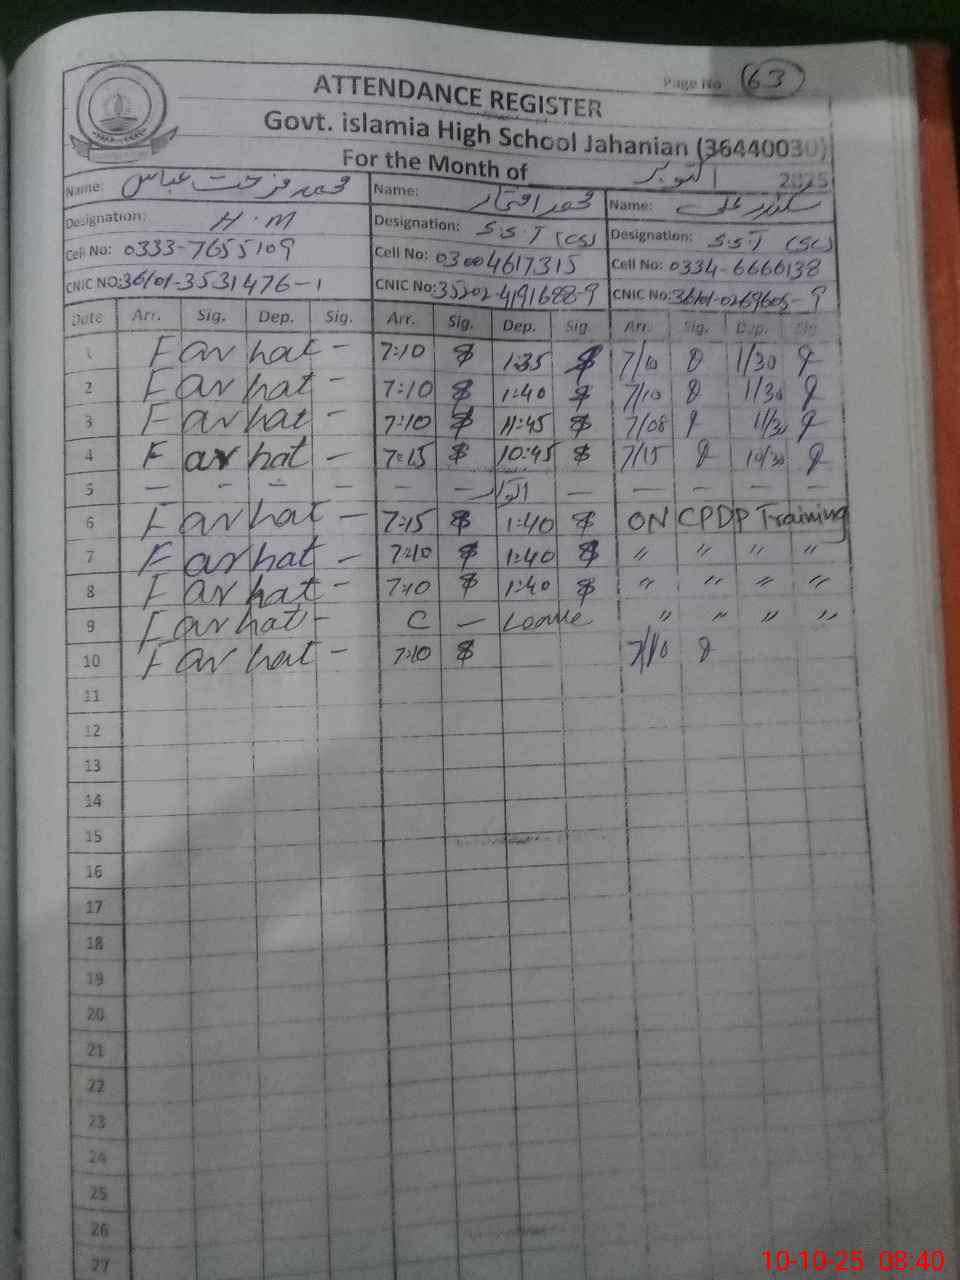 Page No 63
ATTENDANCE REGISTER
Govt. islamia High School Jahanian (36440030)
For the Month of اکتوبر 2025
Name: محمد فرحت عباس Name: محمد افتخار Name: سکندر علی
Designation: H.M Designation: S.S.T (CS) Designation: S.S.T (SC)
Cell No: 0333-7655109 Cell No: 03004617315 Cell No: 0334-6666138
CNIC NO:36101-3531476-1 CNIC No:35202-4191688-9 CNIC No:36101-0269605-9
Date Arr. Sig. Dep. Sig. Arr. Sig. Dep. Sig. Arr. Sig. Dep. Sig.
1 Farhat - 7:10 1:35 7/10 1/30
2 Farhat - 7:10 1:40 7/10 1/30
3 Farhat - 7:10 11:45 7/08 11/30
4 Farhat - 7:15 10:45 7/15 10/30
5 - - - - - - اتوار - - - - -
6 Farhat - 7:15 1:40 ON CPDP Training
7 Farhat - 7:10 1:40 " " " "
8 Farhat - 7:10 1:40 " " " "
9 Farhat - C - Leave " " " "
10 Farhat - 7:10 7/10
11
12
13
14
15
16
17
18
19
20
21
22
23
24
25
26
27
10-10-25 08:40